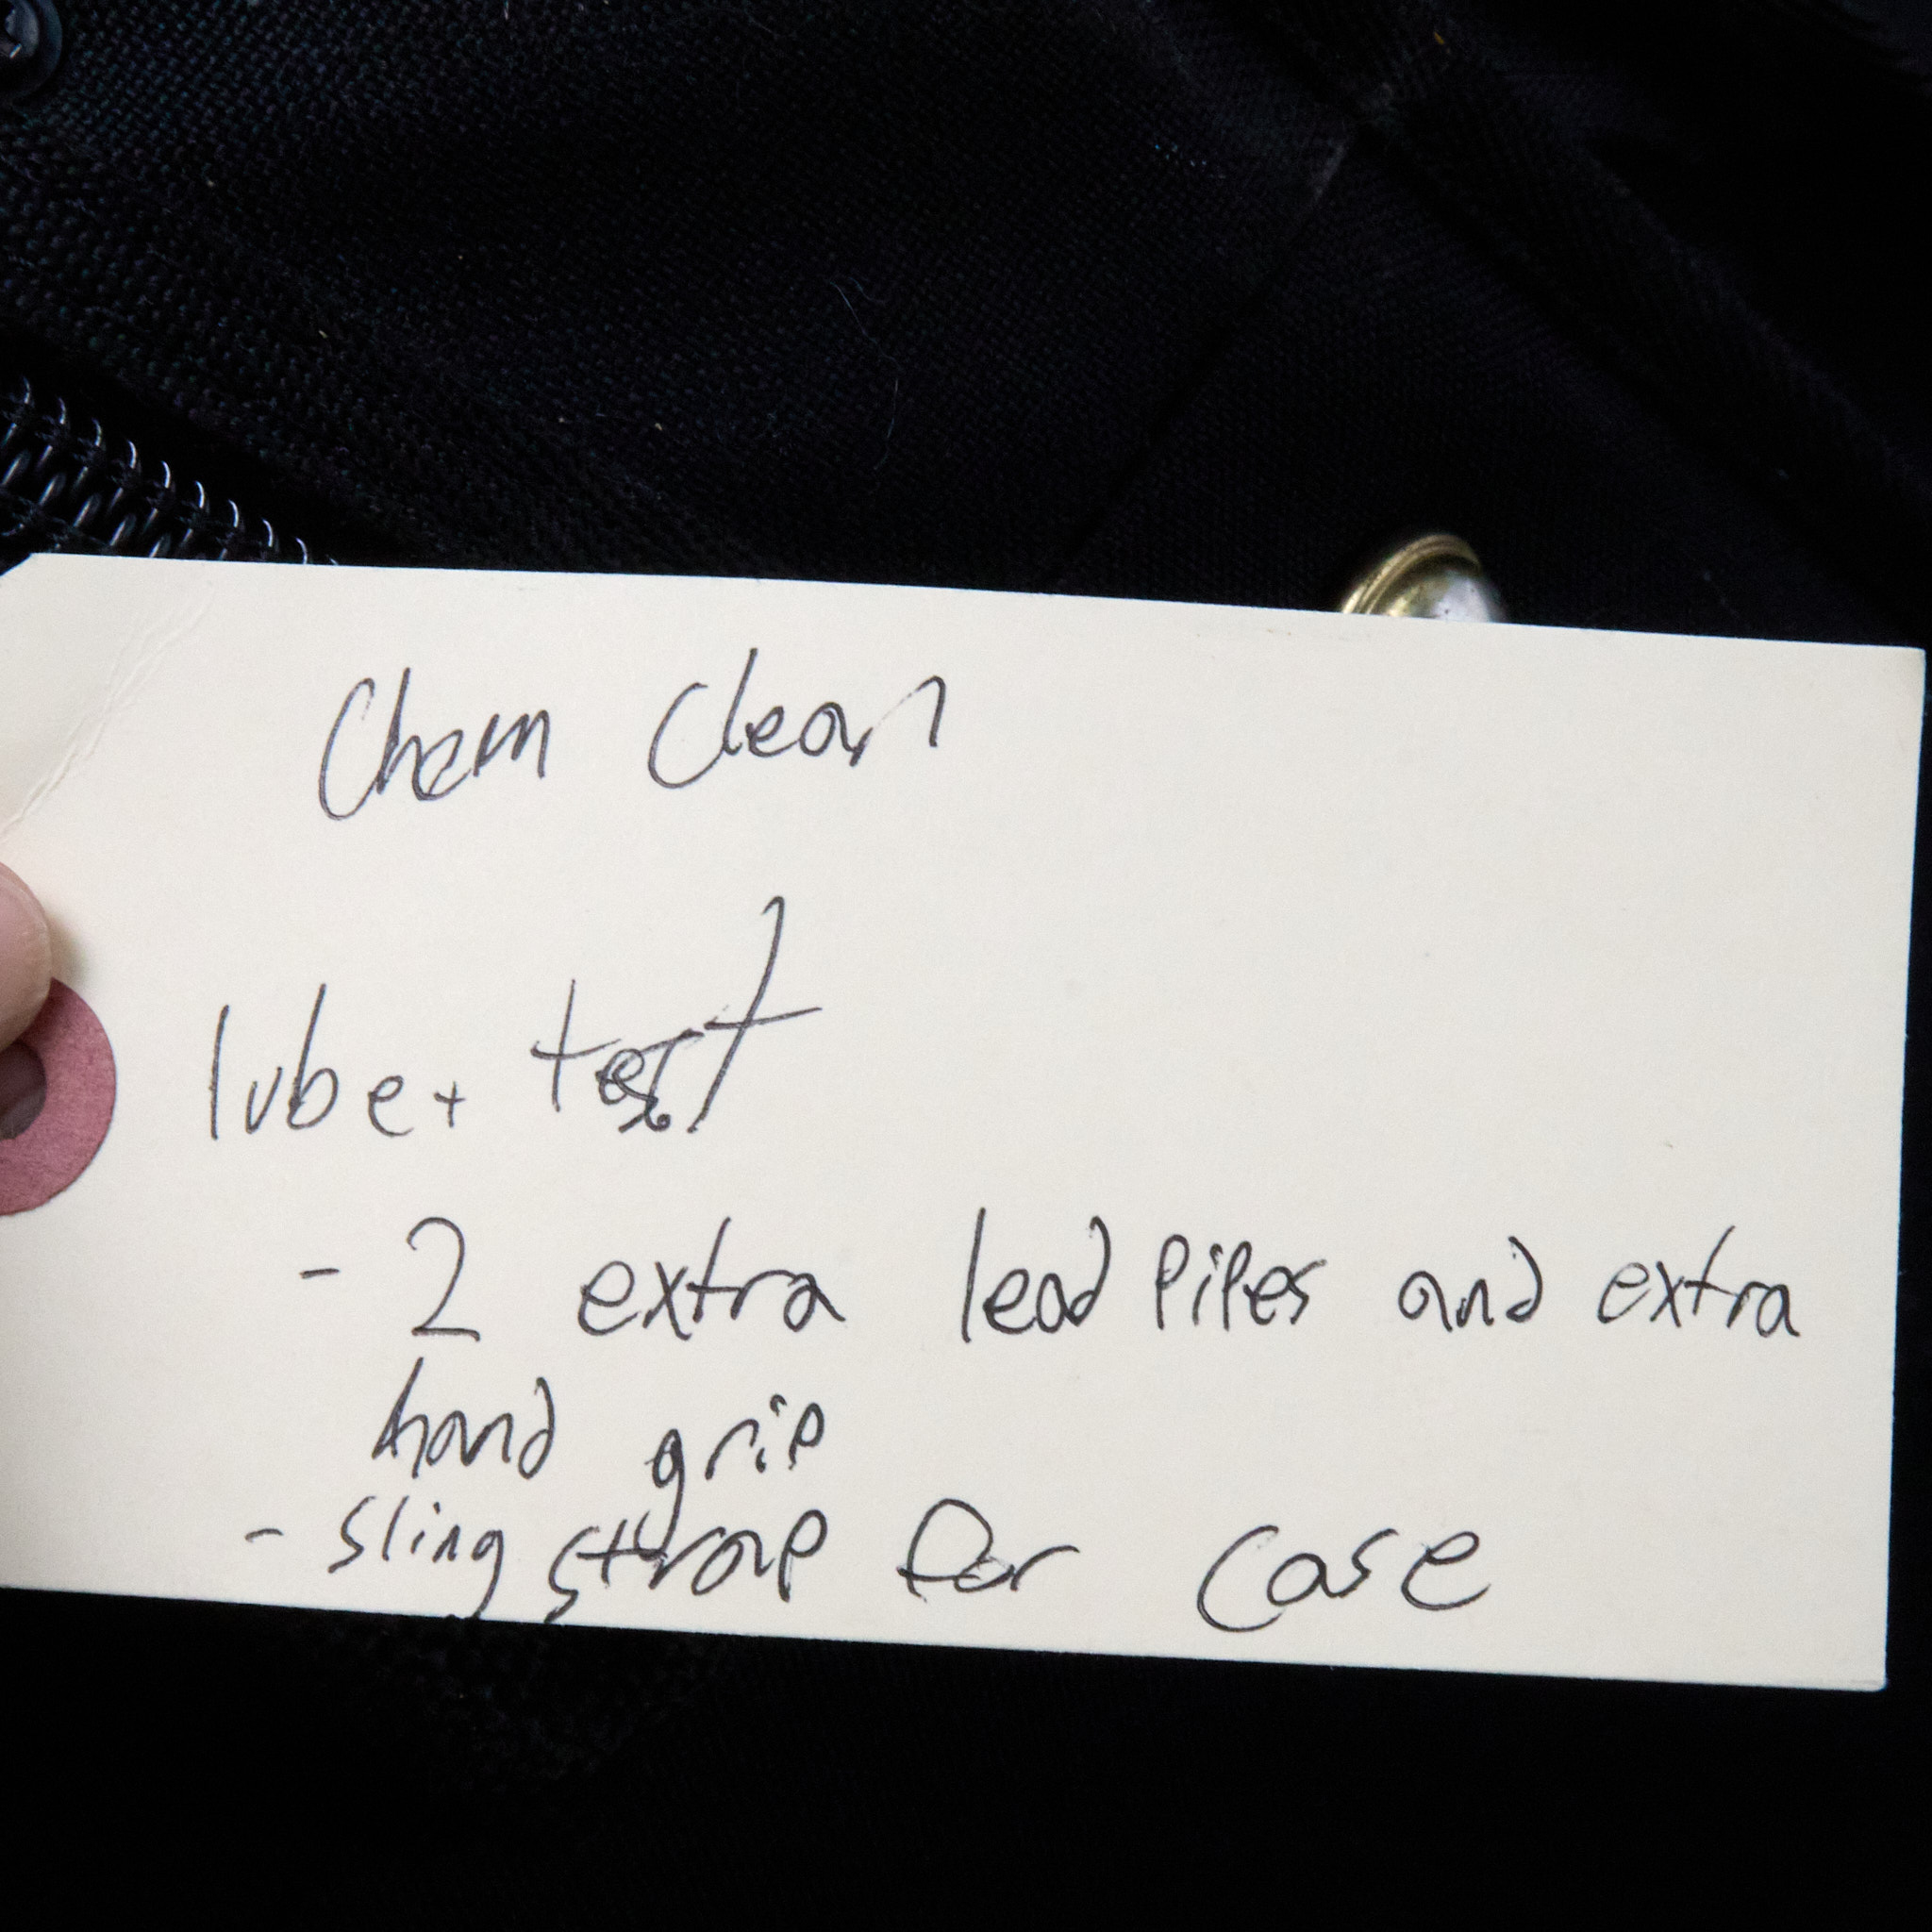 Chem Clean
lube + test
- 2 extra lead pipes and extra
hand grip
- sling strap for case